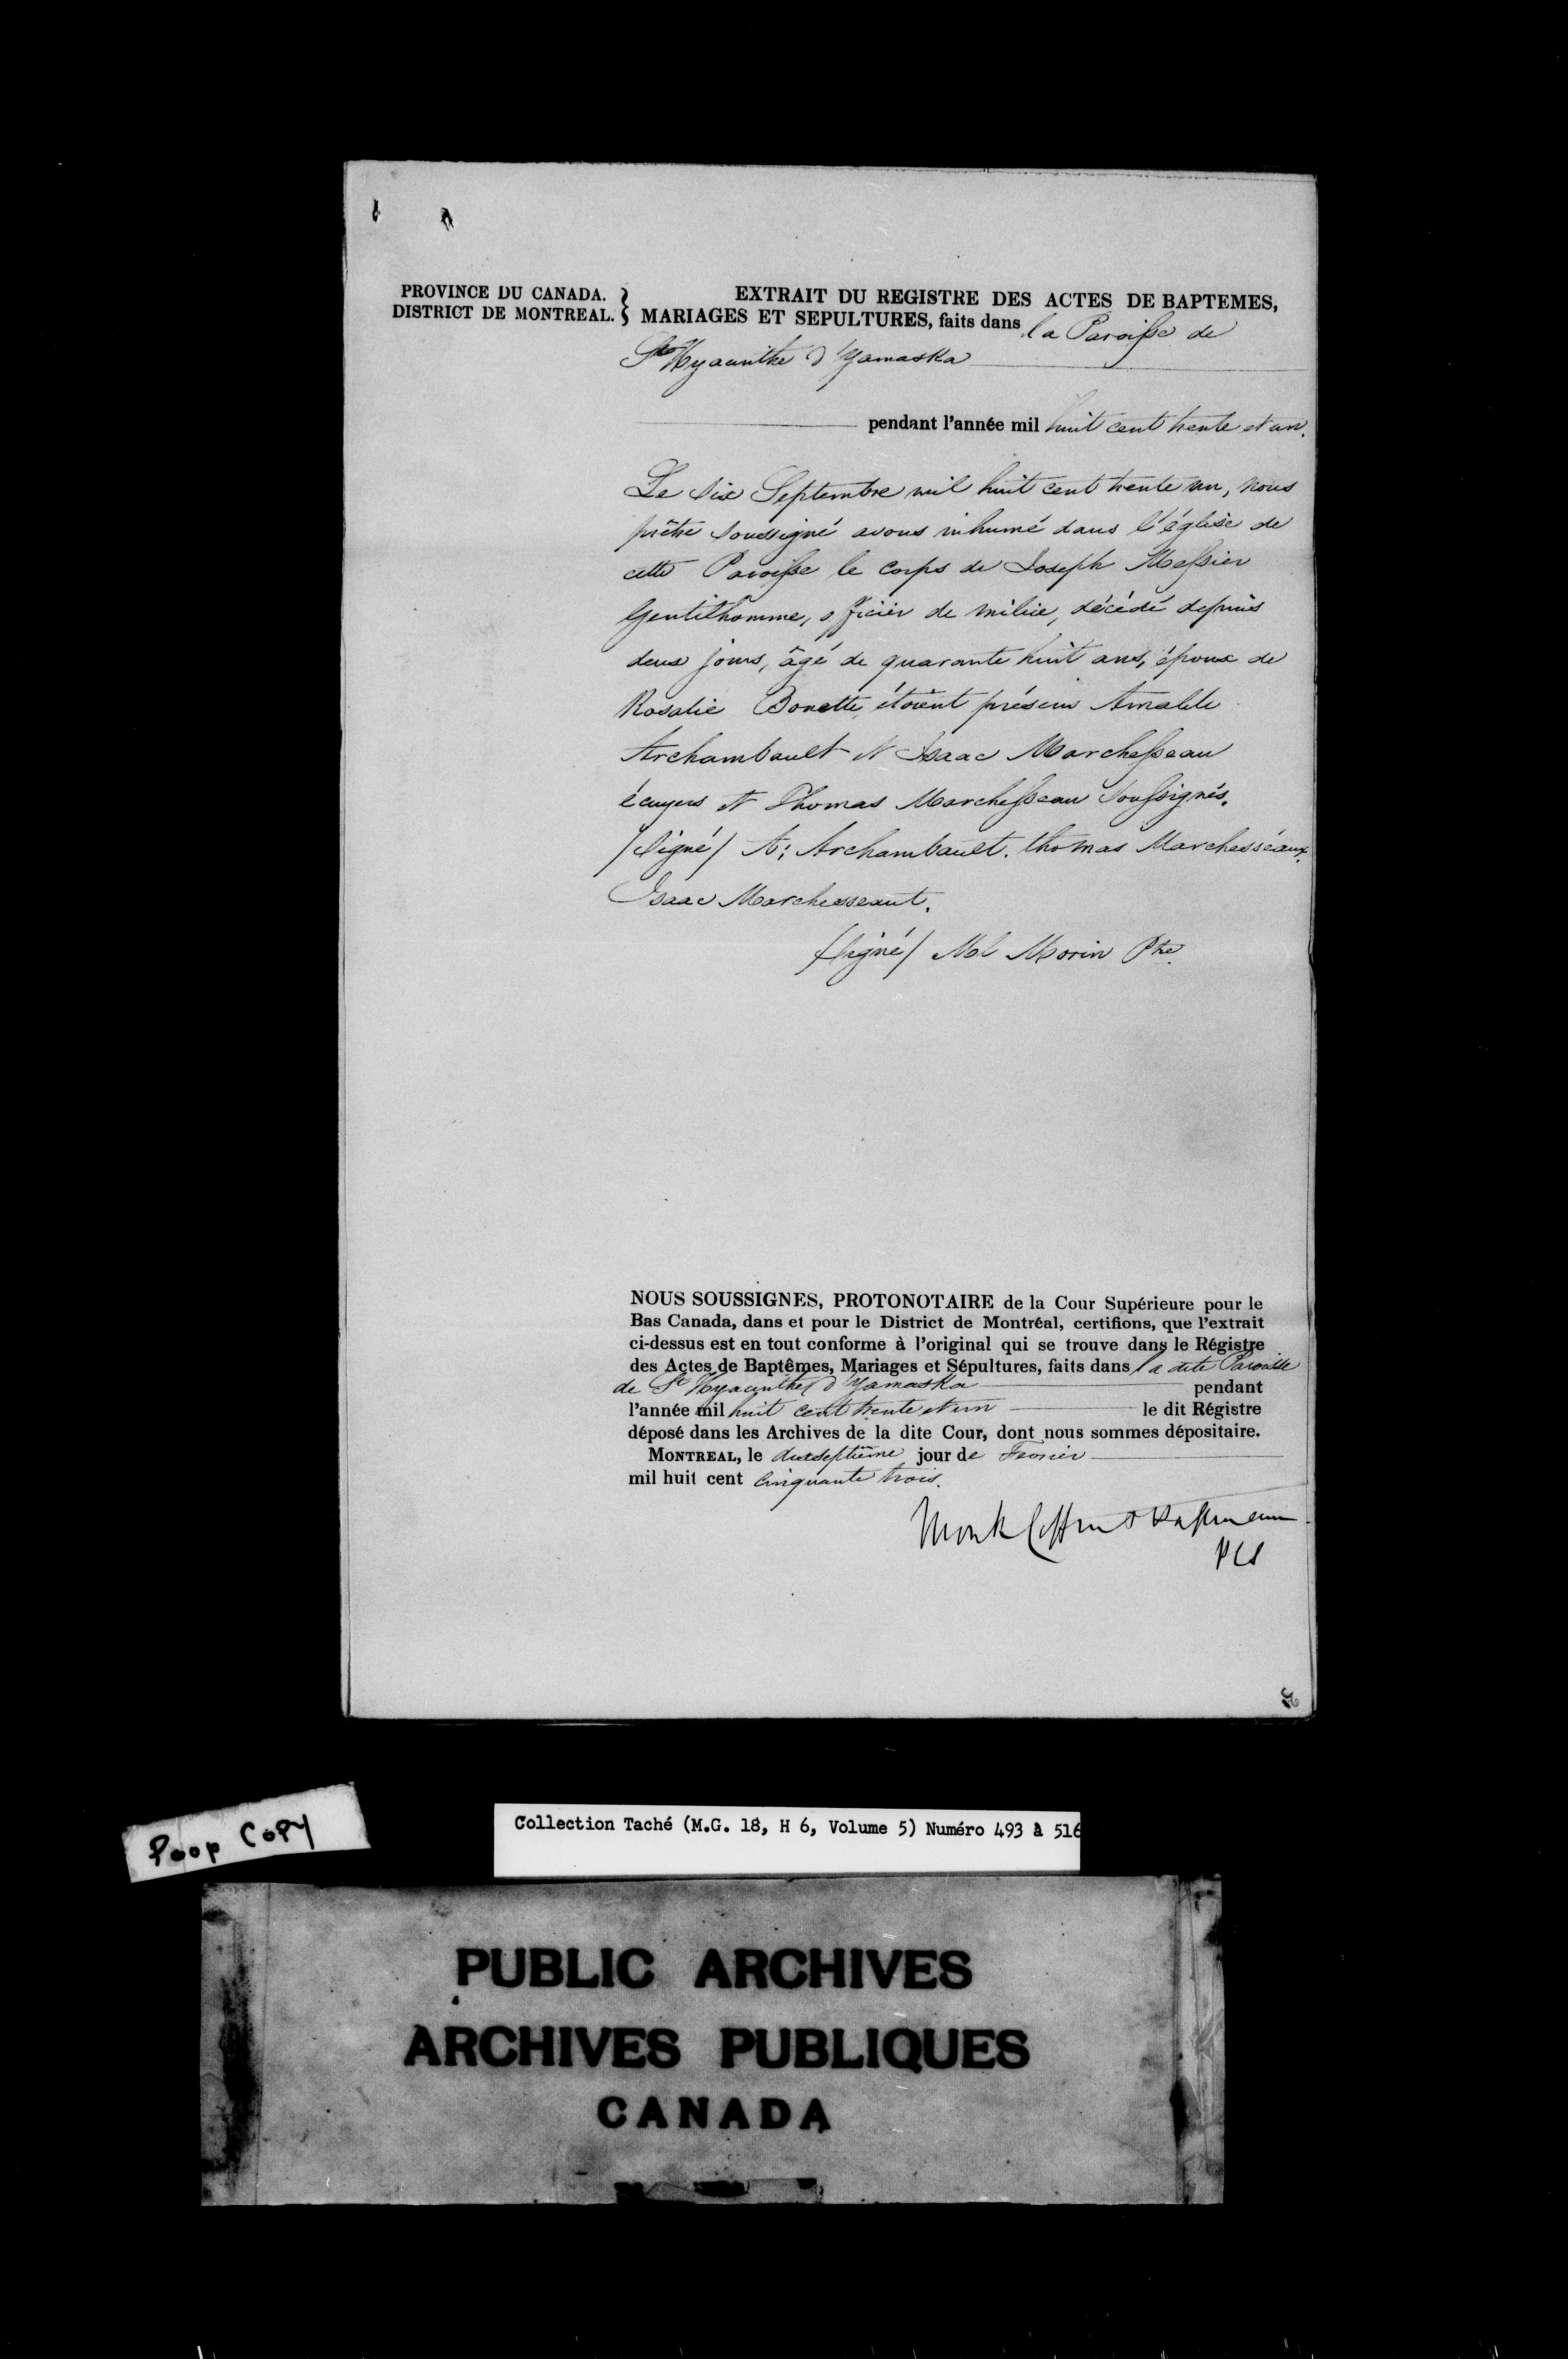 PROVINCE DU CANADA.
DISTRICT DE MONTREAL.
EXTRAIT DU REGISTRE DES ACTES DE BAPTEMES,
MARIAGES ET SEPULTURES, faits dans la Paroisse de
St Hyacinthe d'Yamaska
pendant l'année mil huit cent trente et un.
Le six Septembre mil huit cent trente un, nous
prêtre soussigné avons inhumé dans l'église de
cette Paroisse le corps de Joseph Messier
Gentilhomme, officier de milice, décédé depuis
deux jours, âgé de quarante huit ans, époux de
Rosalie Bonette étoient présens Amable
Archambault et Isaac Marchesseau
écuyers et Thomas Marchesseau soussignés.
/signé/ A: Archambault. thomas Marchesséaux.
Isaac Marchesseaut.
/signé/ Ml Morin Ptre
NOUS SOUSSIGNES, PROTONOTAIRE de la Cour Supérieure pour le
Bas Canada, dans et pour le District de Montréal, certifions, que l'extrait
ci-dessus est en tout conforme à l'original qui se trouve dans le Régistre
des Actes de Baptêmes, Mariages et Sépultures, faits dans la dite Paroisse
de St Hyacinthe d'Yamaska pendant
l'année mil huit cent trente et un le dit Régistre
déposé dans les Archives de la dite Cour, dont nous sommes dépositaire.
MONTREAL, le dixseptième jour de Fevrier
mil huit cent cinquante trois.
Monk Coffin & Papineau
PCS
Poop COPY
Collection Taché (M.G. 18, H 6, Volume 5) Numéro 493 à 516
PUBLIC ARCHIVES
ARCHIVES PUBLIQUES
CANADA